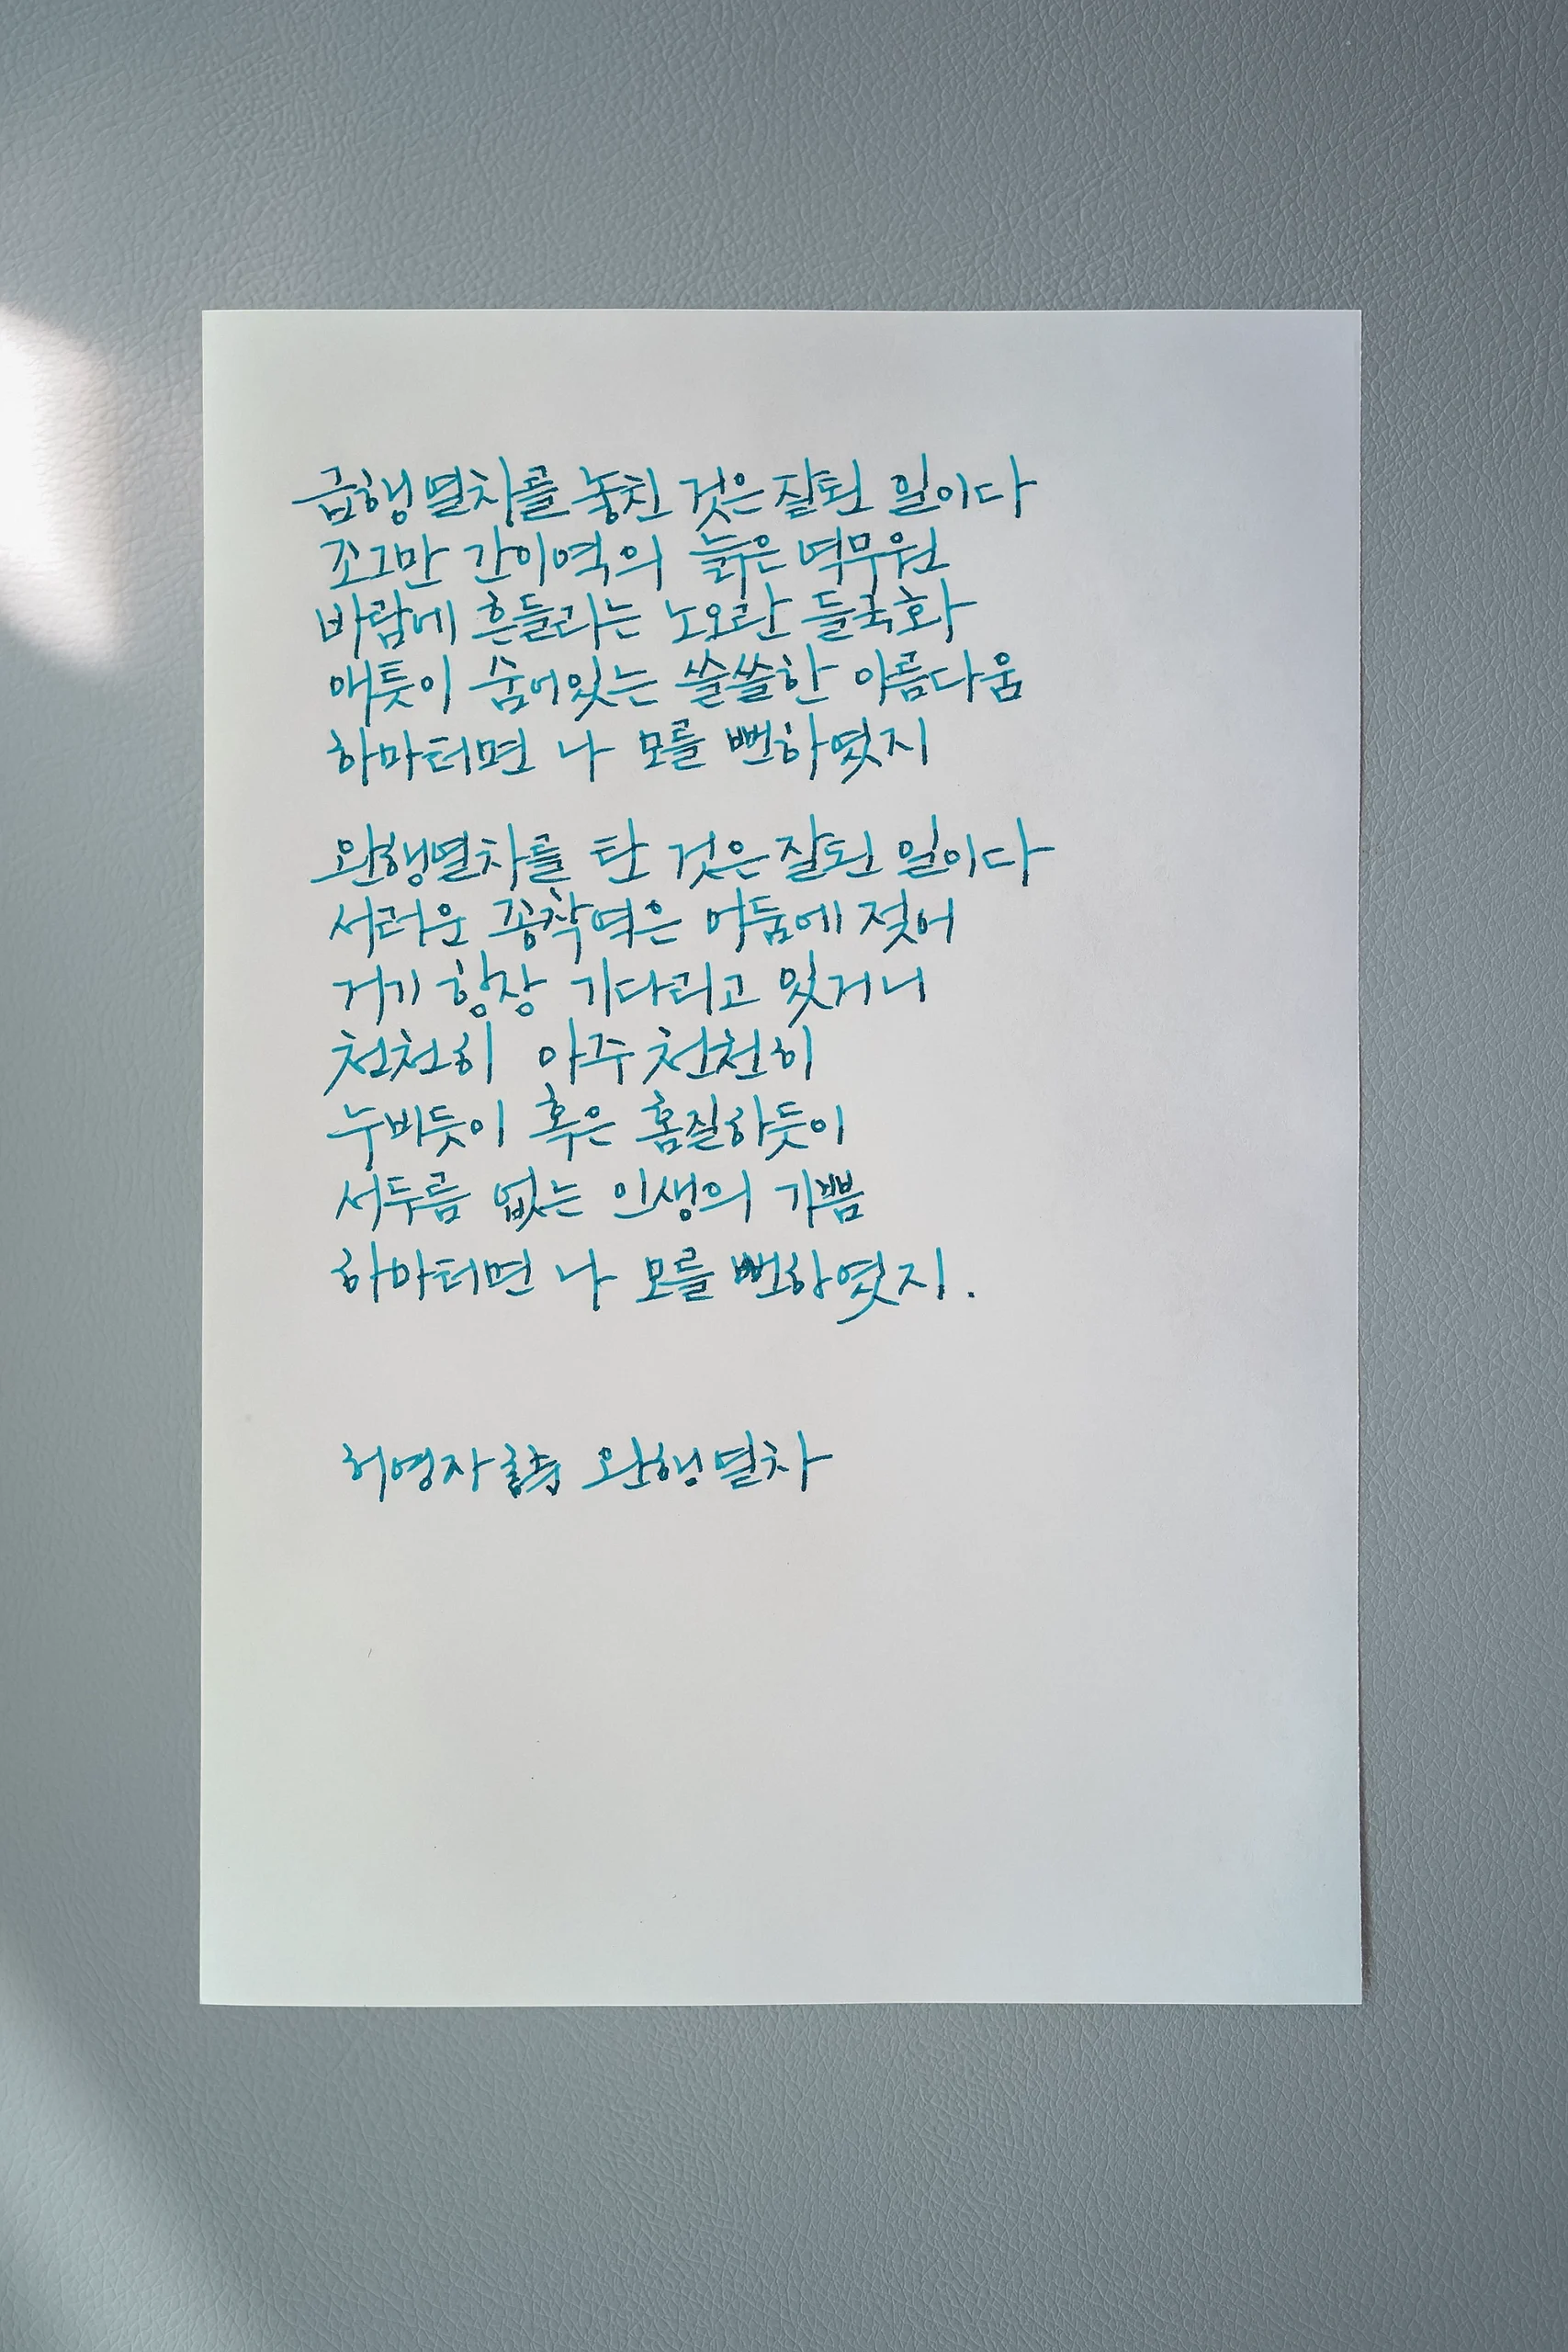 급행열차를 놓친 것은 잘된 일이다
조그만 간이역의 늙은 역무원
바람에 흔들리는 노오란 들국화
애틋이 숨어있는 쓸쓸한 아름다움
하마터면 나 모를 뻔하였지
완행열차를 탄 것은 잘된 일이다
서러운 종착역은 어둠에 젖어
거기 항상 기다리고 있거니
천천히 아주 천천히
누비듯이 혹은 홈질하듯이
서두름 없는 인생의 기쁨
하마터면 나 모를 뻔하였지.
허영자 詩 완행열차